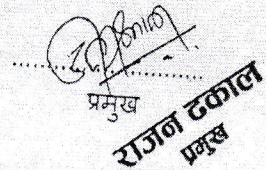 प्रमुख
राजन ढकाल
प्रमुख